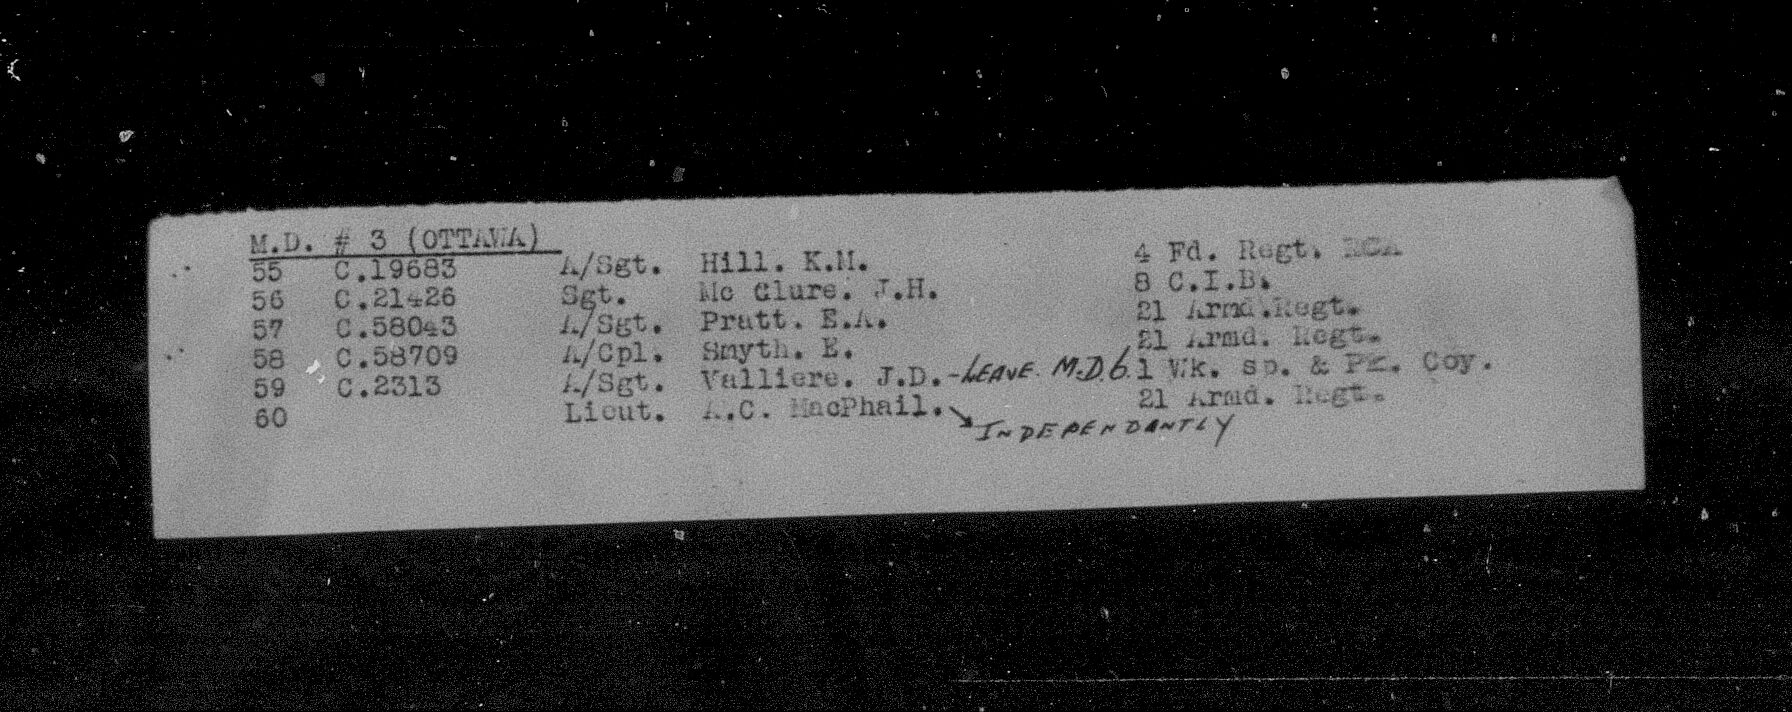 M.D. # 3 (OTTAWA)
55 C.19683 A/Sgt. Hill. K.M. 4 Fd. Regt. RCA
56 C.21426 Sgt. Mc Clure. J.H. 8 C.I.B.
57 C.58043 A/Sgt. Pratt. E.A. 21 Armd.Regt.
58 C.58709 A/Cpl. Smyth. E. 21 Armd. Regt.
59 C.2313 A/Sgt. Valliere. J.D. - LEAVE. M.D.6. 1 Wk. sp. & Pk. Coy.
60 Lieut. A.C. MacPhail. 21 Armd. Regt.
INDEPENDANTLY